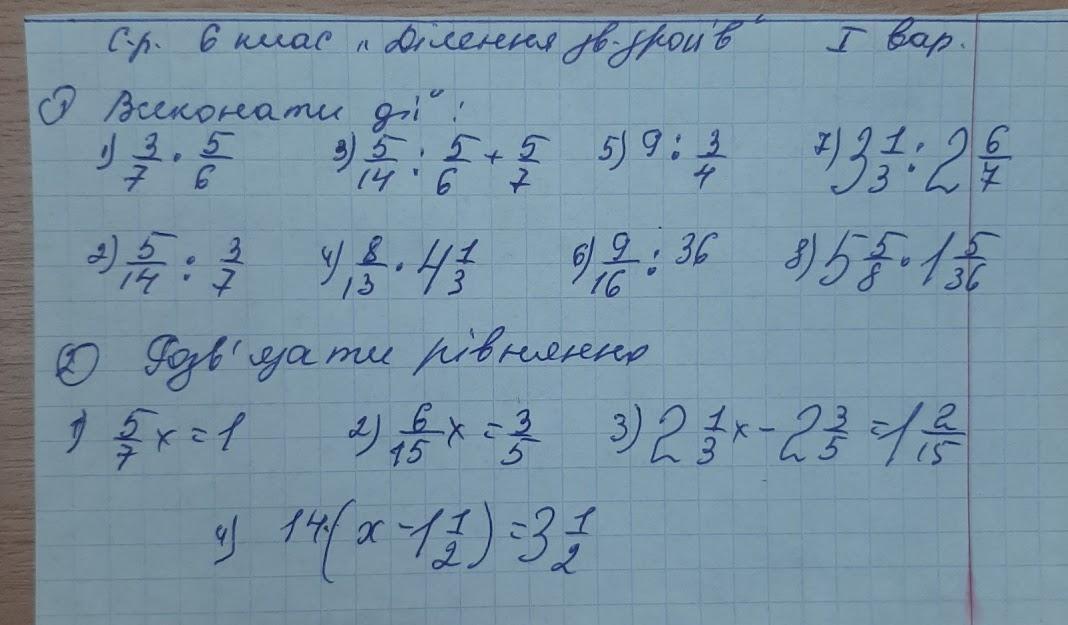 С.р. 6 клас „Ділення зв. дробів" І вар.
① Виконати дії:
1) 3/7 · 5/6 3) 5/14 : 5/6 + 5/7 5) 9 : 3/4 7) 3 1/3 : 2 6/7
2) 5/14 : 3/7 4) 8/13 · 4 1/3 6) 9/16 : 36 8) 5 5/8 · 1 5/36
② Розв'язати рівняння
1) 5/7 x = 1 2) 6/15 x = 3/5 3) 2 1/3 x - 2 3/5 = 1 2/15
4) 14·(x - 1 1/2) = 3 1/2